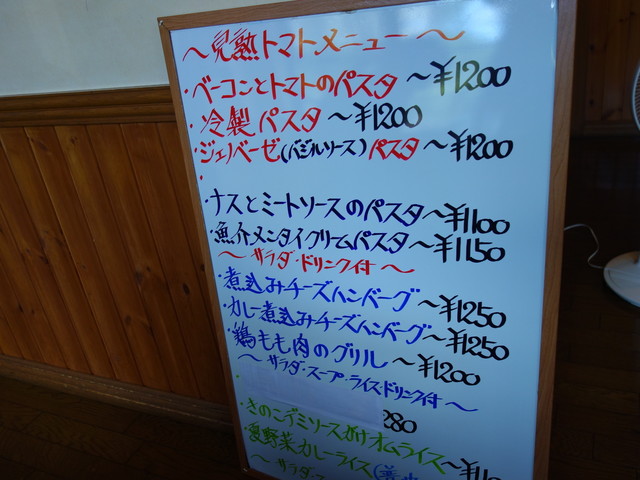 ～完熟トマトメニュー～
・ベーコンとトマトのパスタ ～¥1200
・冷製パスタ ～¥1200
・ジェノベーゼ(バジルソース)パスタ ～¥1200
・
・ナスとミートソースのパスタ～¥1100
・魚介メンタイクリームパスタ～¥1150
～サラダ・ドリンク付～
・煮込みチーズハンバーグ～¥1250
・カレー煮込みチーズハンバーグ～¥1250
・鶏もも肉のグリル～¥1200
～サラダ・スープ・ライス・ドリンク付～
280
・きのこデミソースがけオムライス
・夏野菜カレーライス
～サラダ・ス